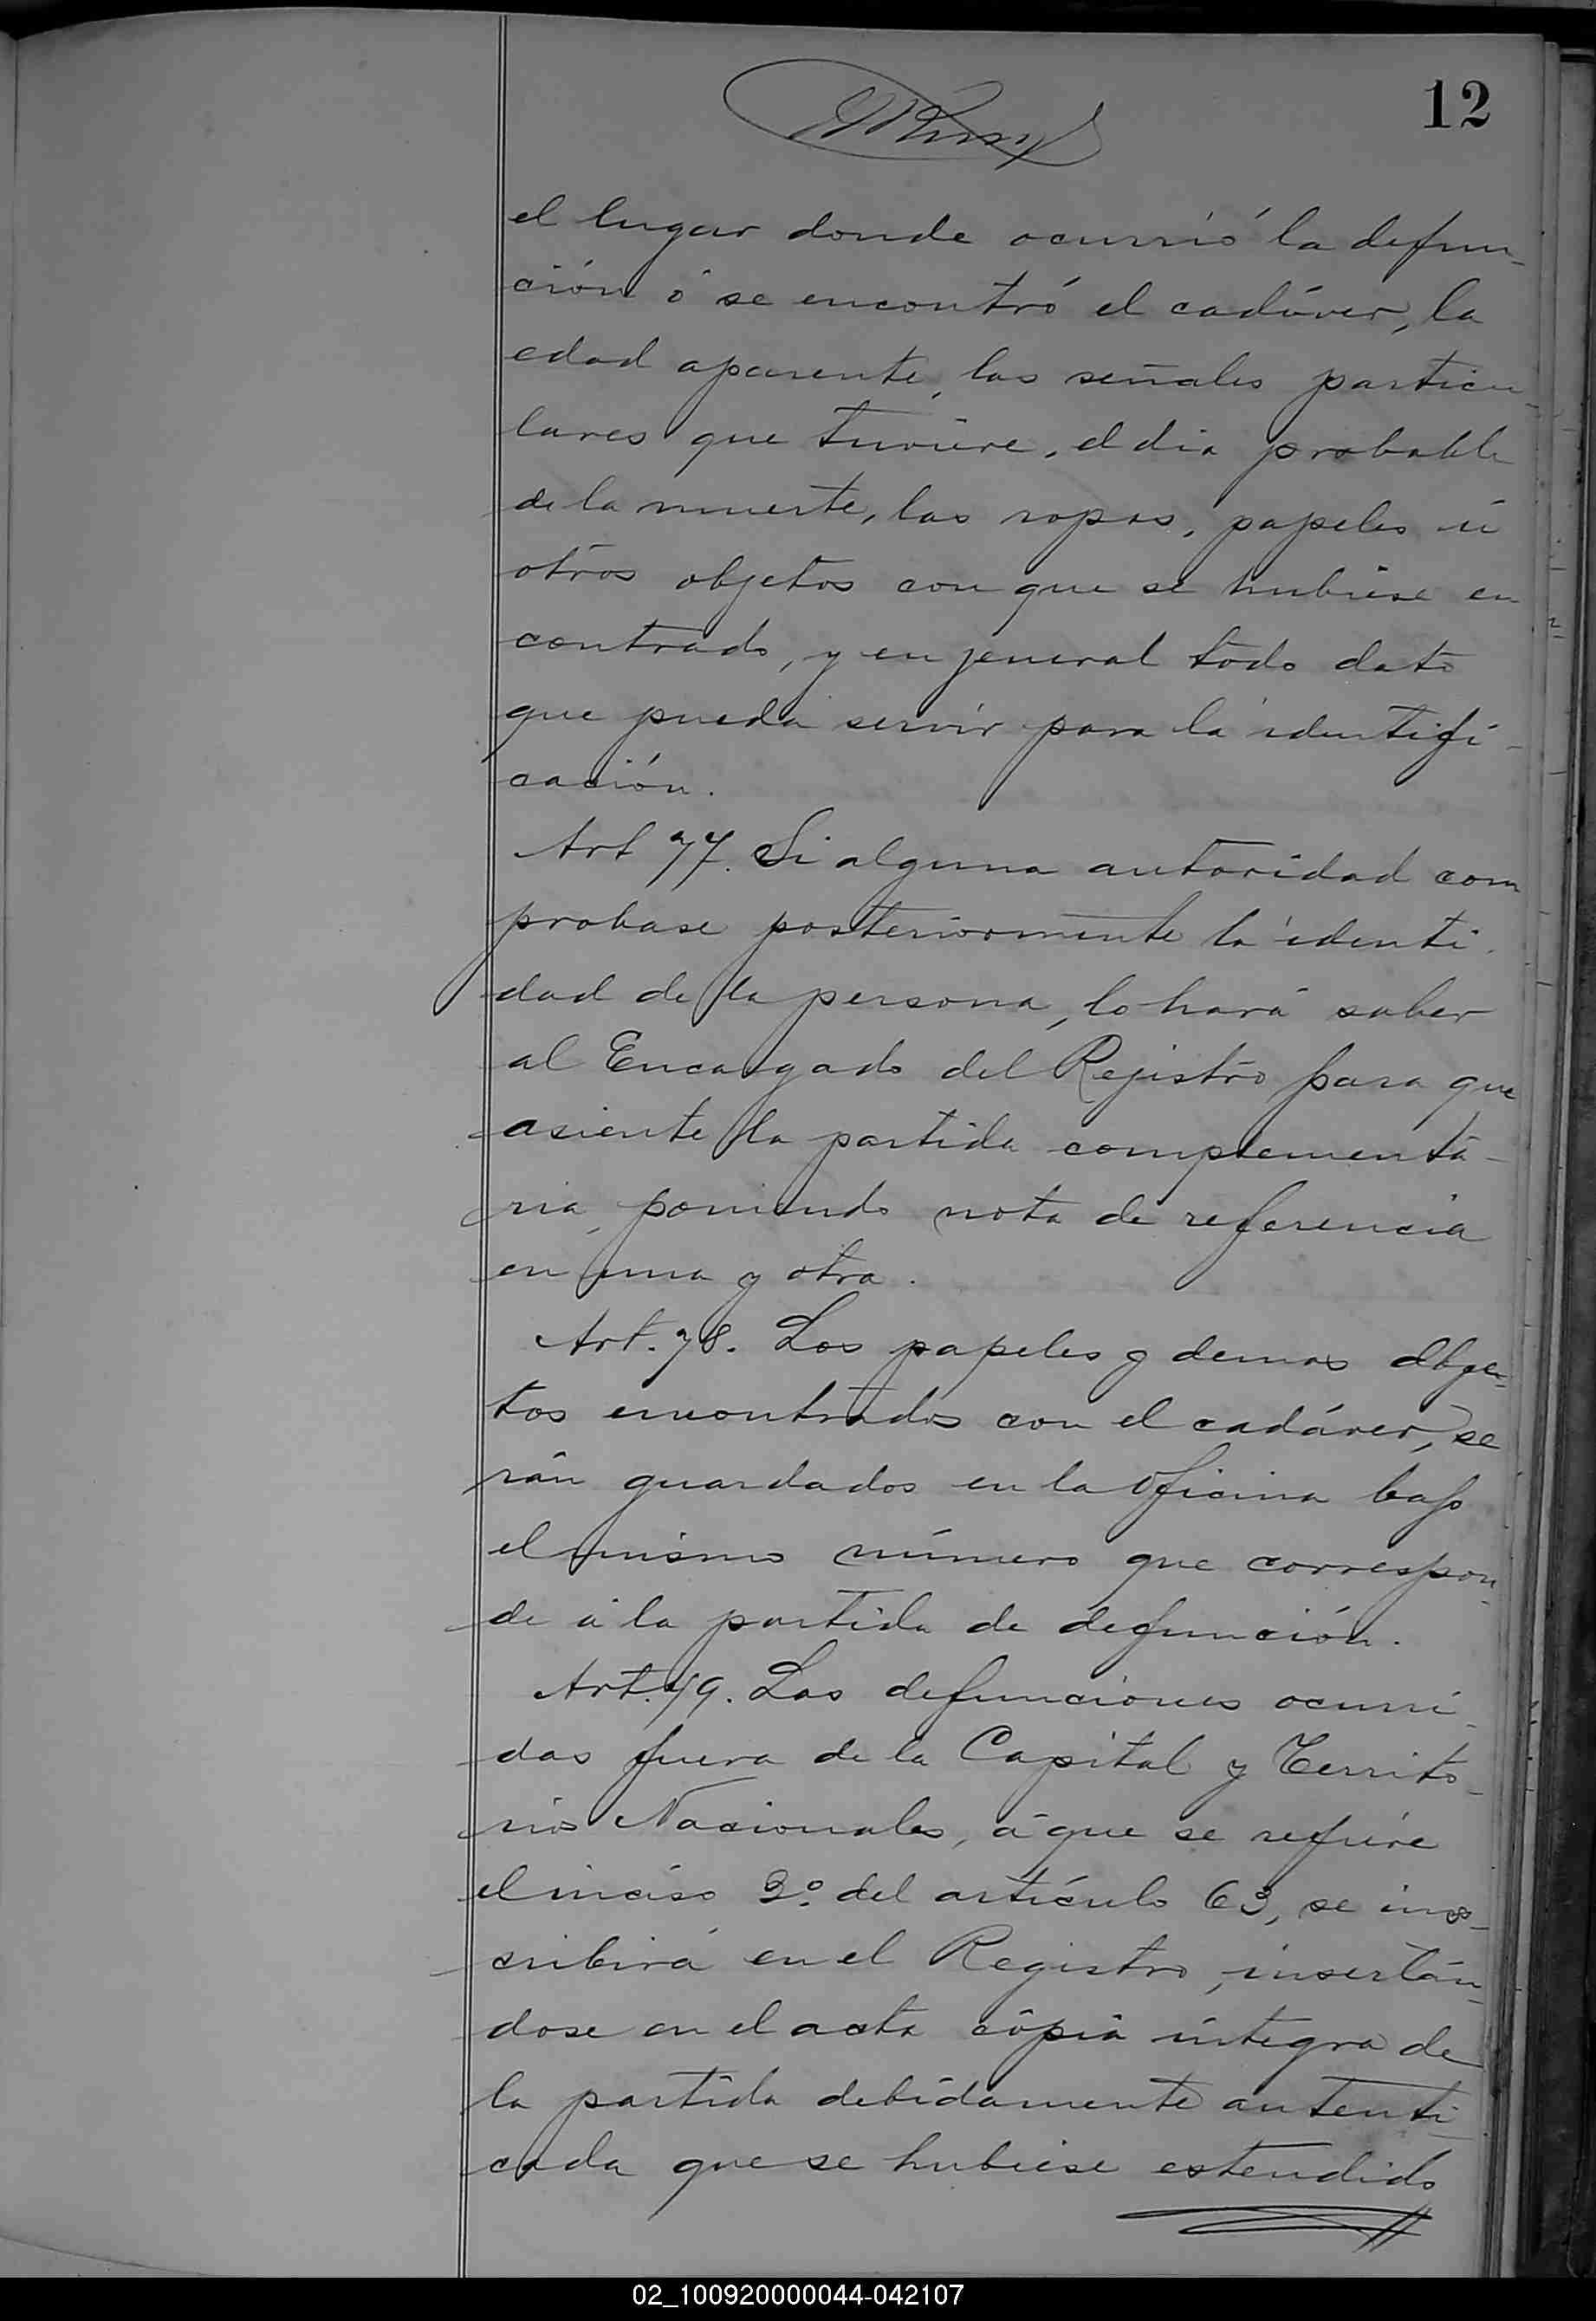 12
el lugar donde ocurrió la defun-
ción ó se encontró el cadáver, la
edad aparente, las señales particu-
lares que tuviere, el dia probable
de la muerte, las ropas, papeles ú
otros objetos con que se hubiese en
contrado, y en jeneral todo dato
que pueda servir para la identifi-
cación.
Art 77. Si alguna autoridad com
probase posteriormente la identi-
dad de la persona, lo hará saber
al Encargado del Rejistro para que
asiente la partida complementa-
ria, poniendo nota de referencia
en una y otra.
Art. 78. Los papeles y demas obje-
tos encontrados con el cadáver, se
rán guardados en la oficina bajo
el mismo número que correspon-
de á la partida de defunción.
Art. 79. Las defunciones ocurri-
das fuera de la Capital y Territo-
rios Nacionales, á que se refiere
el inciso 3º. del artículo 63, se ins-
cribirá en el Registro, insertán-
dose en el acta cópia íntegra de
la partida debidamente autenti-
cada que se hubiese estendido
02_100920000044-042107